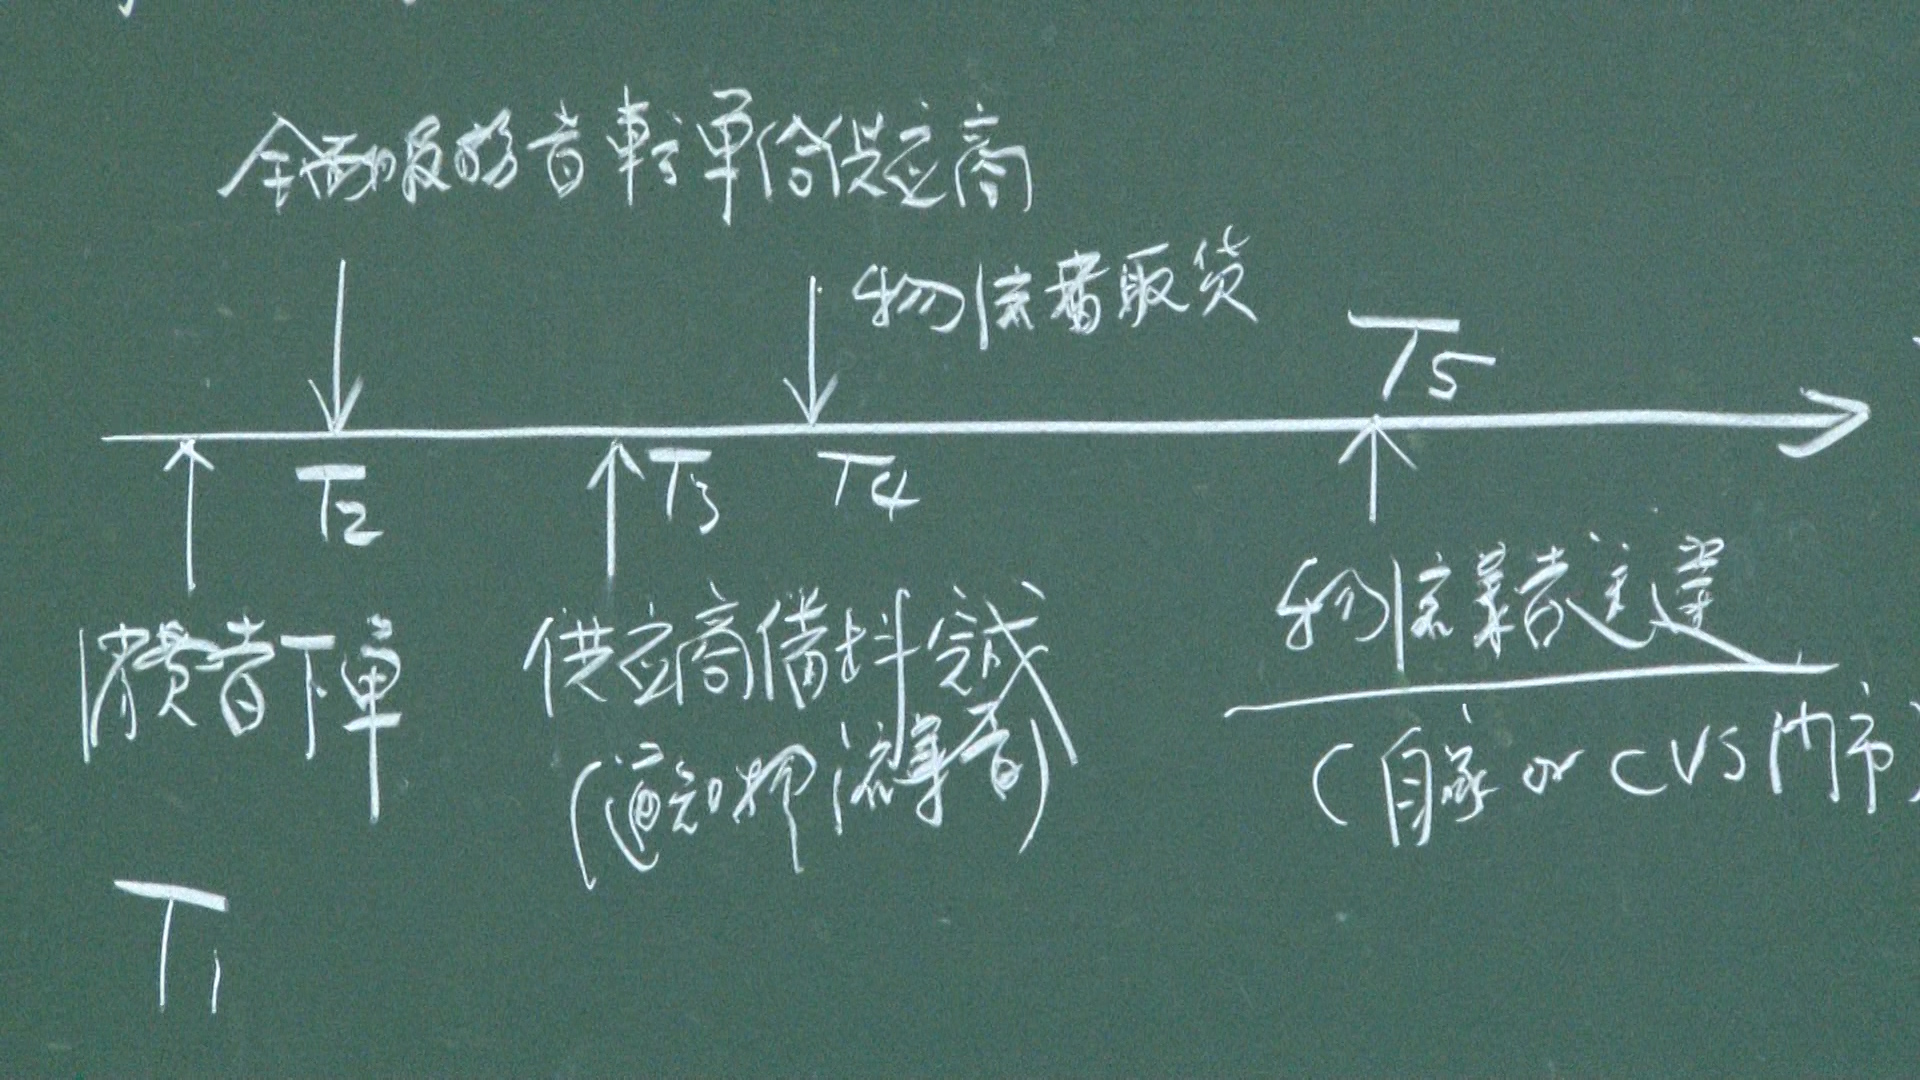 服務者轉單給供应商
物流者取货
T5
T2
T3
T4
消費者下單
供应商備料完成
(通知物流業者)
物流業者送達
(自家 or CVS門市)
T1